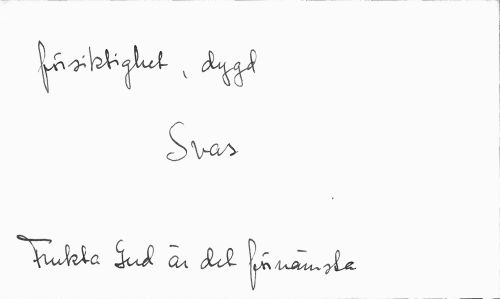 försiktighet, dygd
Svas
Frukta Gud är det förnämsta